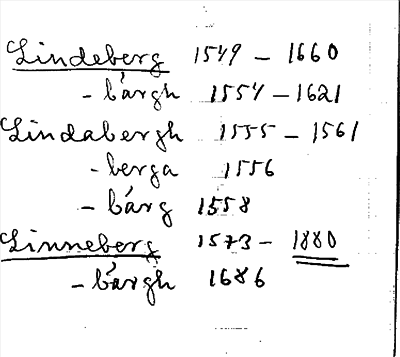 Lindeberg 1549 - 1660
- bärgh 1554 - 1621
Lindabergh 1555 - 1561
- berga 1556
- bärg 1558
Linneberg 1573 - 1880
- bärgh 1686